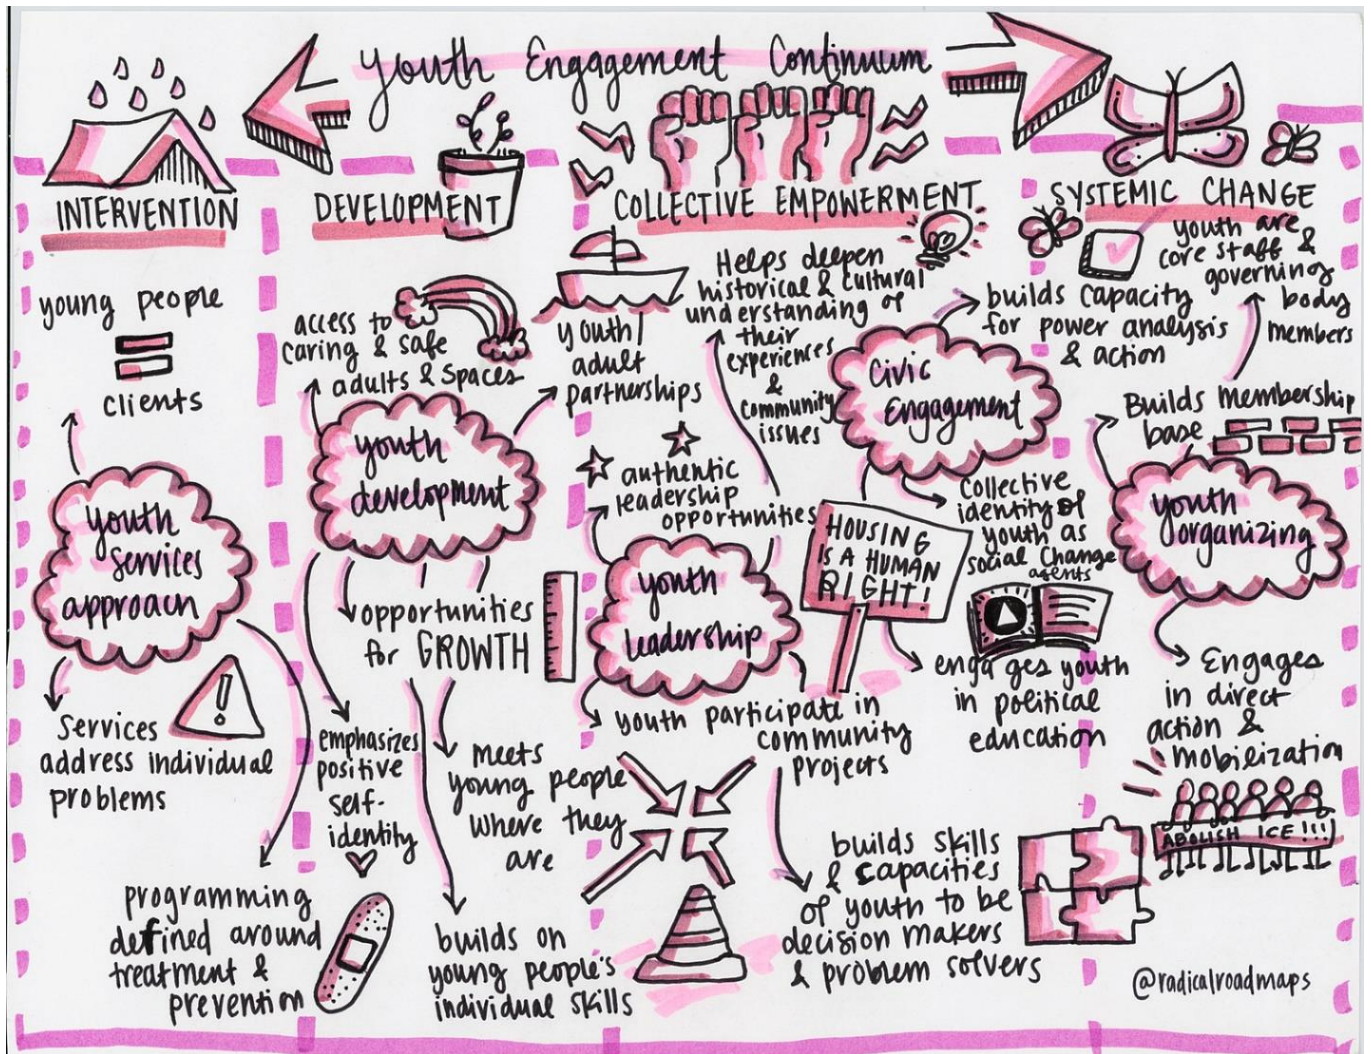 Youth Engagement Continuum
INTERVENTION
young people
clients
youth
services
approach
Services
address individual
problems
programming
defined around
treatment &
prevention
DEVELOPMENT
access to
caring & safe
adults & spaces
youth
development
youth/
adult
partnerships
opportunities
for GROWTH
emphasizes
positive
self-
identity
meets
young people
where they
are
builds on
young people's
individual skills
COLLECTIVE EMPOWERMENT
Helps deepen
historical & cultural
understanding of
their
experiences
&
community
issues
authentic
leadership
opportunities
youth
leadership
youth participate in
community
projects
builds skills
& capacities
of youth to be
decision makers
& problem solvers
civic
Engagement
builds capacity
for power analysis
& action
HOUSING
IS A HUMAN
RIGHT!
Collective
identity of
youth as
social change
agents
engages youth
in political
education
SYSTEMIC CHANGE
youth are
core staff &
governing
body
members
Builds membership
base
youth
organizing
Engages
in direct
action &
mobilization
ABOLISH ICE!!!
@radicalroadmaps